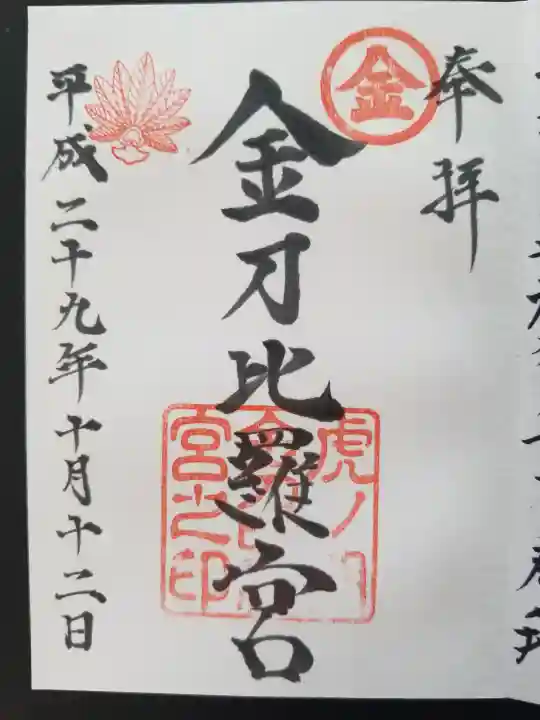 奉拝
金
金刀比羅宮
虎ノ門
宮之印
平成二十九年十月十二日